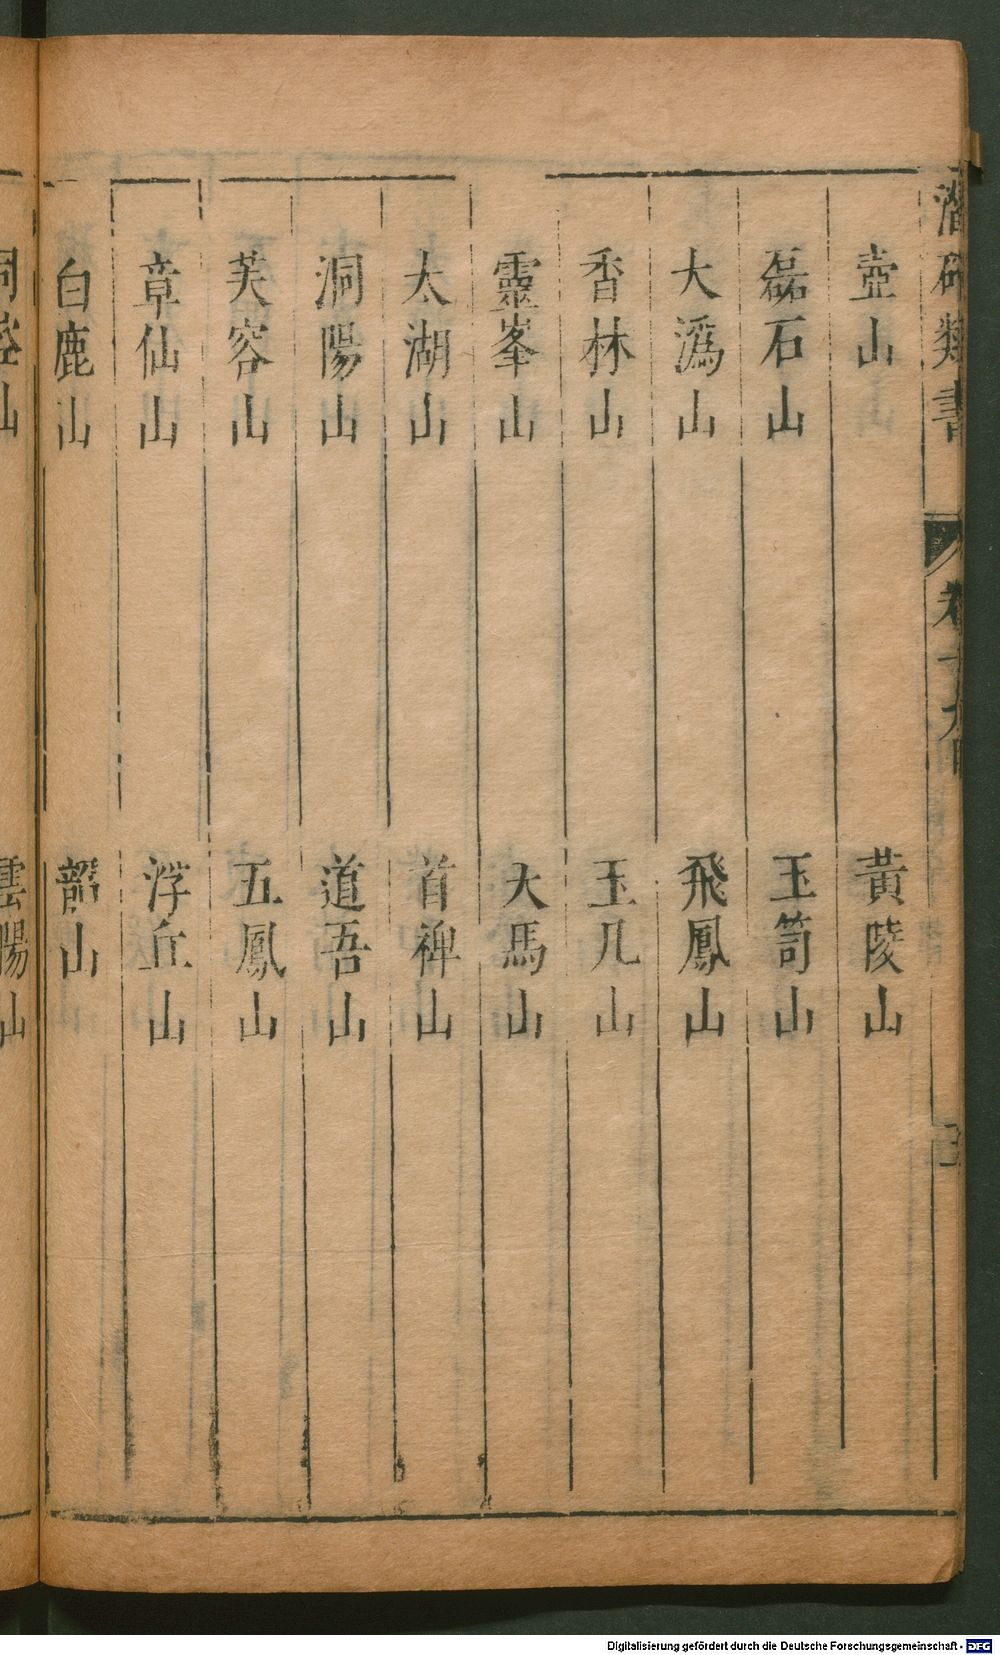 潛確類書 卷十九
壺山 黃陵山
磊石山 玉笥山
大溈山 飛鳳山
香林山 玉几山
靈峯山 大馬山
太湖山 首禆山
洞陽山 道吾山
芙容山 五鳳山
章仙山 浮丘山
白鹿山 韶山
雲陽山
Digitalisierung gefördert durch die Deutsche Forschungsgemeinschaft - DFG